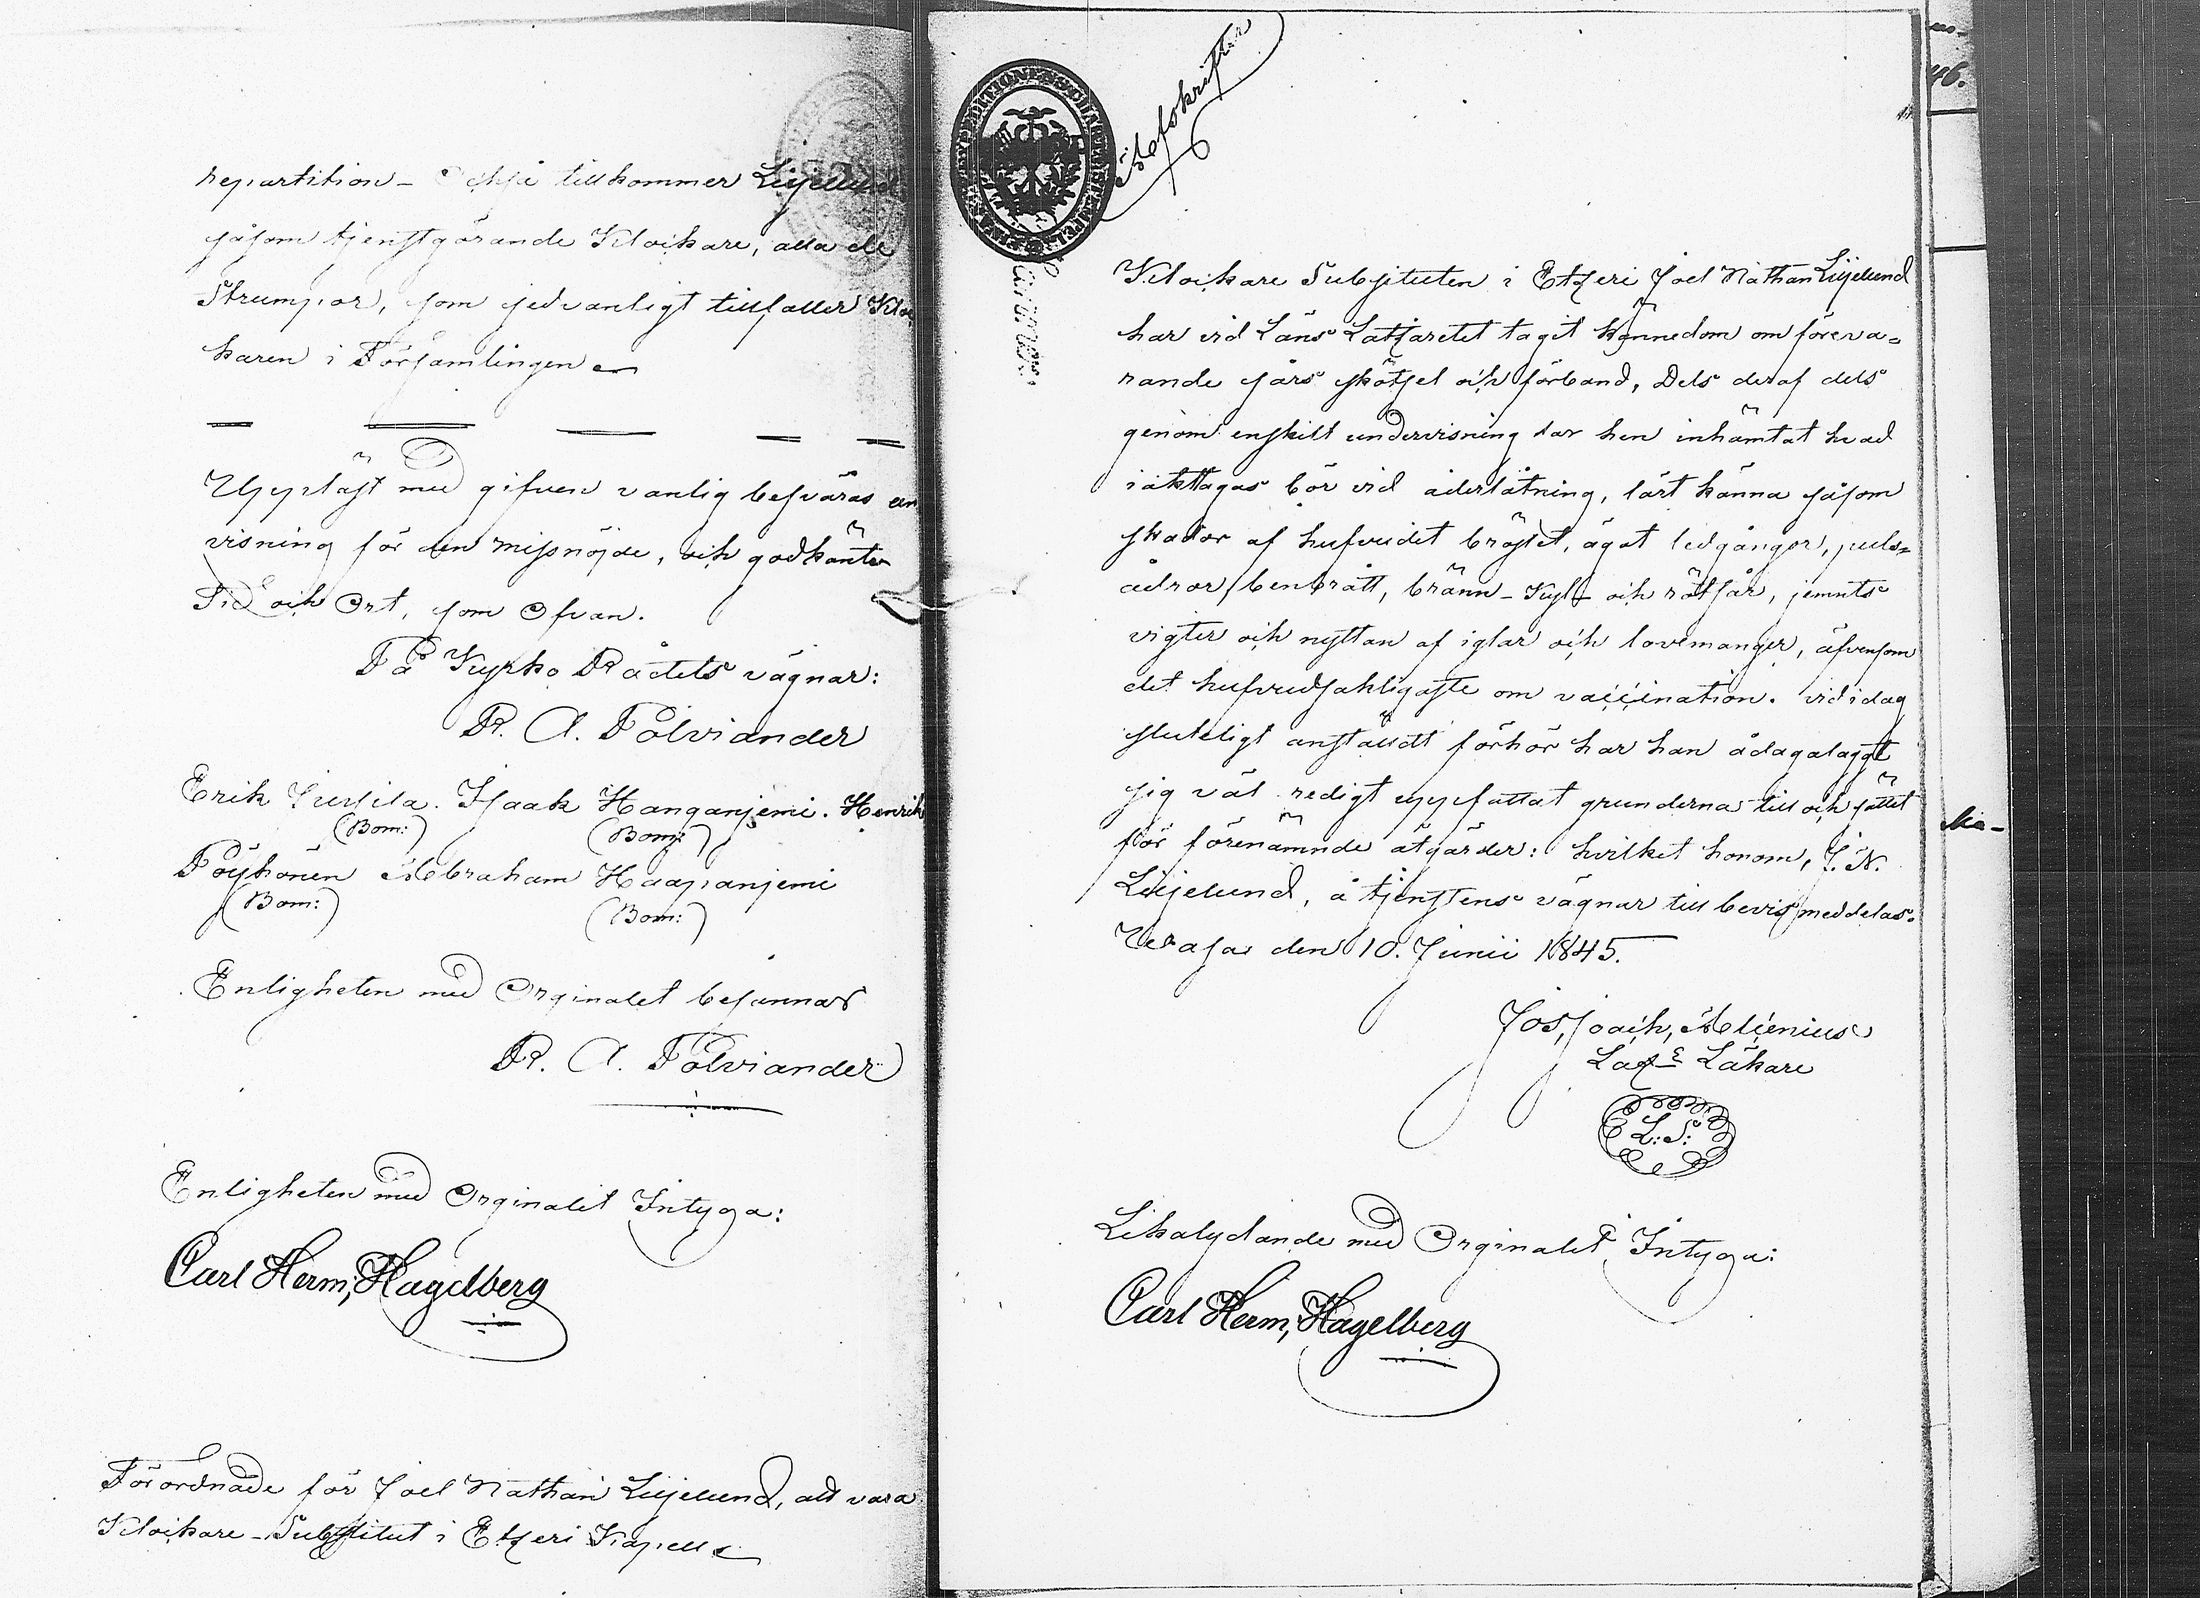 repartition – Också tillkommer Liljelund
såsom tjenstgörande Klockare, alla de
Strumpor, som sedvanligt tillfaller Kloc
karen i Församlingen
Uppläst med gifven vanlig besvärs an
visning för den missnöjde, och godkänter
Tid och Ort, som Ofvan.
På Kyrko Rådets vägnar:
R. A. Polviander
Erik Isaak Hanganjemi. Henrik
(Bom:) (Bom:)
Pöyhönen Abraham Haapanjemi
(Bom:) (Bom:)
Enligheten med Orginalet besannar
R. A. Polviander
Enligheten med Orginalet Intyga:
Carl Herm, Hagelberg
Förordnade för Joel Nathan Liljelund, att vara
Klockare-Substitut i Etzeri Kapell
Afskrifter
Klockare Substituten i Etzeri Joel Nathan Liljelund
har vid Läns Latzaretet tagit kännedom om föreva=
rande sårs skötsel och förband, Dels deraf dels
genom enskilt undervisning har han inhämtat hvad
iakttagas bör vid åderlåtning, lärt känna såsom
skador af hufvudet bröstet, ögat ledgångor, puls=
ådror benbrått, bränn- Kyl- och rötsår, jemnts
vigter och nyttan af iglar och lovemanger, äfvensom
det hufvudsakligaste om vaccination. vid idag
sluteligt anstäldt förhör har han ådagalaggt
sig väl redigt uppfattat grunderna till och sättet
för förenämnde åtgärder: hvilket honom, J. N.
Liljelund, å tjenstens vägnar till bevis meddelas.
Wasa den 10. Junii 1845.
Jos, Joach, Alcenius
Laz Läkare
L: S:
Likalydande med Orginalet Intyga:
Carl Herm, Hagelberg
46.